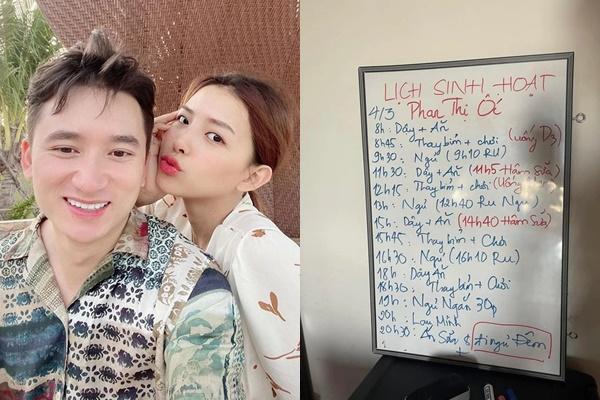 LỊCH SINH HOẠT
4/3 Phan Thị Ốc
8h: Dậy + Ăn
8h45: Thay bỉm + chơi (uống D3)
9h30: Ngủ (9h10 RU)
11h30: Dậy + Ăn (11h5 Hâm Sữa)
12h15: Thay bỉm + chơi (Uống
13h: Ngủ (12h40 Ru Ngủ)
15h: Dậy + Ăn (14h40 Hâm Sữa)
15h45: Thay bỉm + Chơi
16h30: Ngủ (16h10 Ru)
18h: Dậy Ăn
18h30: Thay bỉm + Chơi
19h: Ngủ Ngắn 30p
20h: Lau Mình
20h30: Ăn Sữa & Đi ngủ Đêm